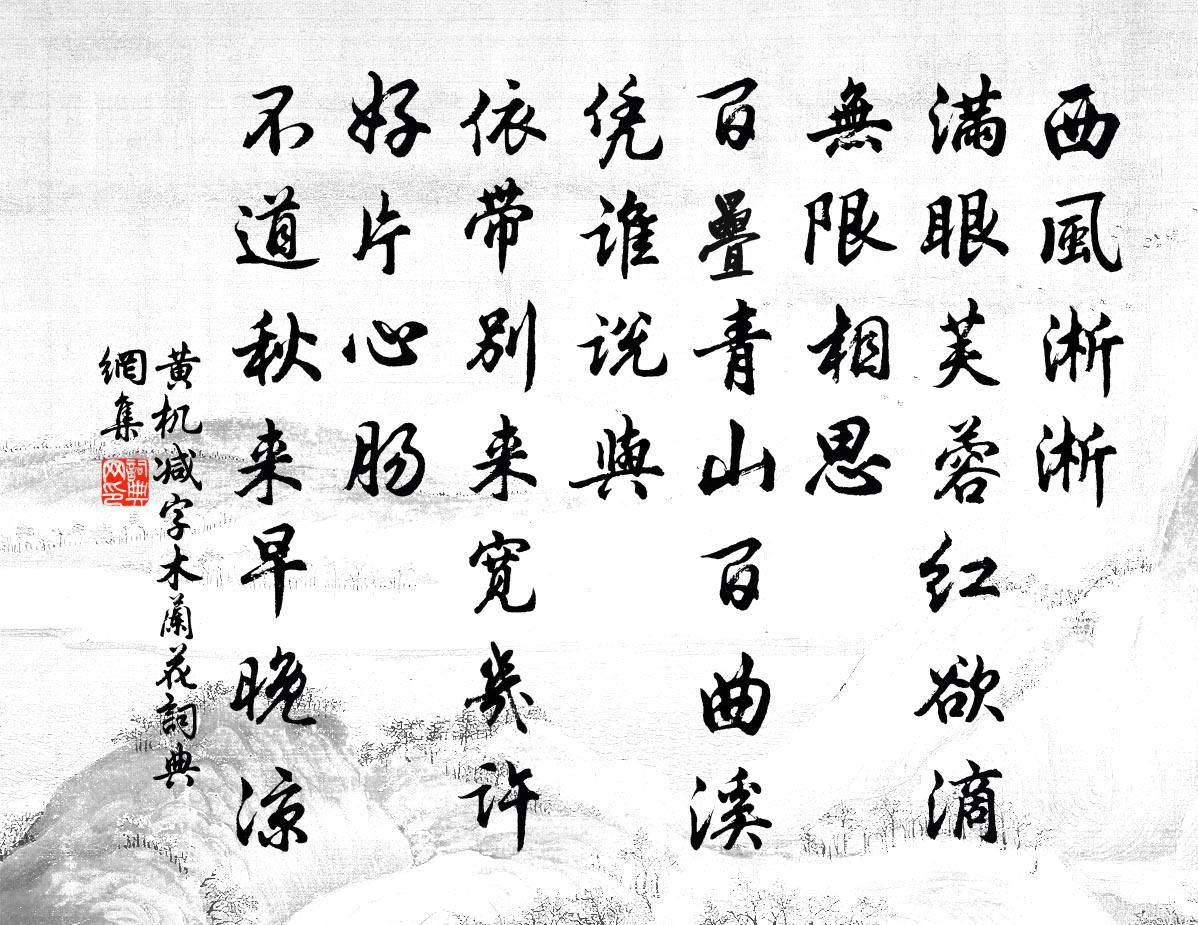 西風淅淅
滿眼芙蓉红欲滴
無限相思
百疊青山百曲溪
凭谁说與
依带别来宽幾许
好片心肠
不道秋来早晚凉
黄机减字木蘭花詞典
網集
詞典
网印